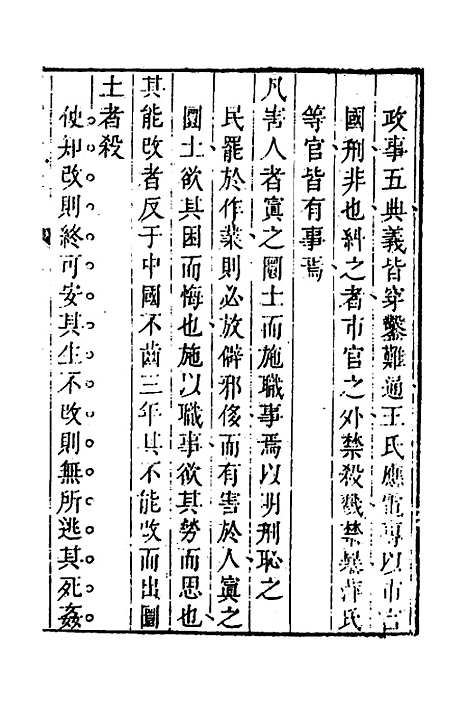 政事五典義皆穿鑿難通王氏應電專以市言
國刑非也糾之者市官之外禁殺戮禁暴萍氏
等官皆有事焉
凡害人者寘之圜土而施職事焉以明刑恥之
民罷於作業則必放僻邪侈而有害於人寘之
圜土欲其困而悔也施以職事欲其勞而思也
其能改者反于中國不齒三年其不能改而出圜
土者殺
使知改則終可安其生不改則無所逃其死姦